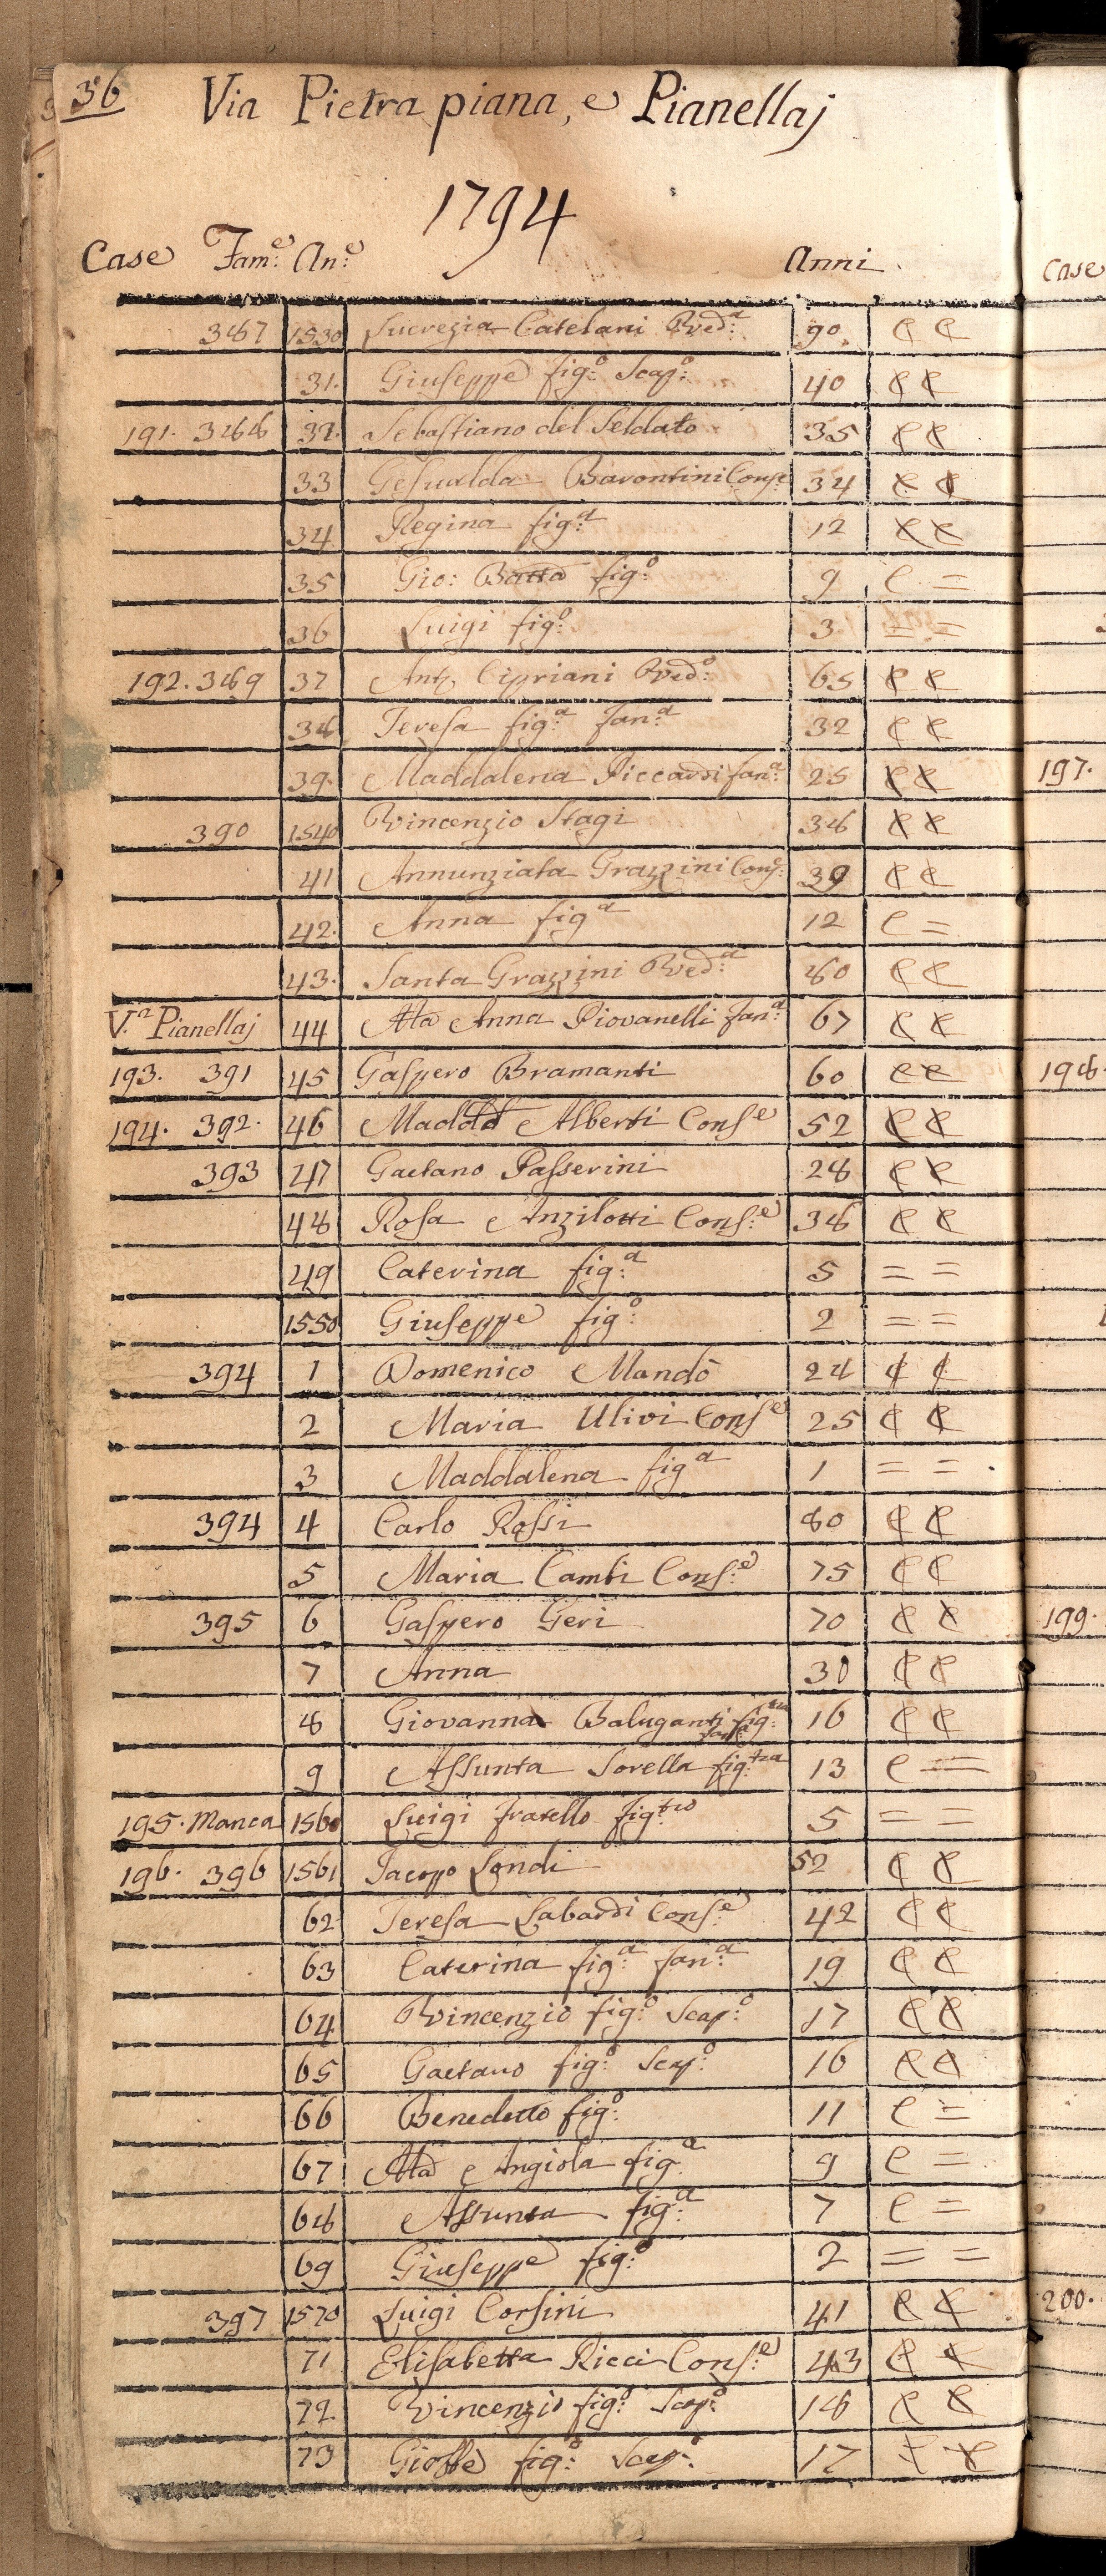 36
Via Pietra piana, e Pianellaj
1794
Case Fam:e An:e Anni
387 1530 Lucrezia Catelani Ved:a 90 C C
31. Giuseppe fig:o Scap:o 40 C C
191. 388 32. Sebastiano del Soldato 35 C C
33 Gesualda Barontini Cons:e 34 C C
34 Regina fig:a 12 C C
35 Gio: Batta fig:o 9 C =
36 Luigi fig:o 3 = =
192. 389 37 Anto Cipriani Ved:o 65 C C
38 Teresa fig:a Fan:a 32 C C
39. Maddalena Piccardi fan:a 25 C C
390 1540 Vincenzio Stagi 38 C C
41 Annunziata Grazzini Cons:e 39 C C
42. Anna fig:a 12 C =
43. Santa Grazzini Ved:a 80 C C
V.a Pianellaj 44 Ma Anna Piovanelli Fan:a 67 C C
193. 391 45 Gaspero Bramanti 60 C C
194. 392. 46 Maddda Alberti Cons:e 52 C C
393 47 Gaetano Passerini 28 C C
48 Rosa Anzilotti Cons:e 38 C C
49 Caterina fig:a 5 = =
1550 Giuseppe fig:o 2 = =
394 1 Domenico Mandò 24 C C
2 Maria Ulivi Cons:e 25 C C
3 Maddalena fig:a 1 = =
394 4 Carlo Rossi 80 C C
5 Maria Cambi Cons:e 75 C C
395 6 Gaspero Geri 70 C C
7 Anna 30 C C
8 Giovanna Baluganti fig:tra fan:a 16 C C
9 Assunta Sorella fig:tra 13 C =
195. Manca 1560 Luigi fratello fig:tro 5 = =
196. 396 1561 Jacopo Londi 52 C C
62 Teresa Labardi Cons:e 42 C C
63 Caterina fig:a fan:a 19 C C
64 Vincenzio fig:o Scap:o 17 C C
65 Gaetano fig:o Scap:o 16 C C
66 Benedetto fig:o 11 C =
67 Ma Angiola fig:a 9 C =
68 Assunta fig:a 7 C =
69 Giuseppe fig:o 2 = =
397 1570 Luigi Corsini 41 C C
71 Elisabetta Ricci Cons:e 43 C C
72. Vincenzio fig:o Scap:o 18 C C
73 Gioffè fig:o Scap:o 17 C C
Case
197.
198.
199.
200.